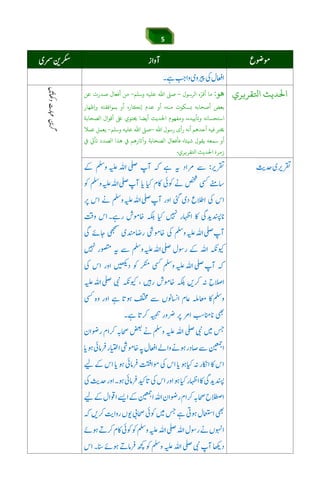 5
موضوع
آواز
سکرین سمری
افعال کی پیروی واجب ہے۔
الحديث التقريري
هو: ما أقرّه الرسول - صلى الله عليه وسلم- من أفعال صدرت عن
بعض أصحابه بسكوت منه، أو عدم إنكاره أو بموافقته وإظهار
استحسانه وتأييده، ومفهوم الحديث أيضا يحتوي على أقوال الصحابة
يخبر فيه أحدهم أنه رأى رسول الله -صلى الله عليه وسلم- يعمل عملا
أو سمعه يقول شيئا، فأفعال الصحابة وآثارهم في هذا الصدد تأتي في
زمرة الحديث التقريري.
تقریری حدیث
تقریر: سے مراد یہ ہے کہ آپ صلی اللہ علیہ وسلم کے
سامنے کسی شخص نے کوئی کام کیا یا آپ صلی اللہ علیہ وسلم کو
اس کی اطلاع دی گئی اور آپ صلی اللہ علیہ وسلم نے اس پر
ناپسندیدگی کا اظہار نہیں کیا بلکہ خاموش رہے۔ اس وقت
آپ صلی اللہ علیہ وسلم کی خاموشی رضامندی سمجھی جائے گی
کیونکہ اللہ کے رسول صلی اللہ علیہ وسلم سے یہ متصور نہیں
کہ آپ صلی اللہ علیہ وسلم کسی منکر کو دیکھیں اور اس کی
اصلاح نہ کریں بلکہ خاموش رہیں ، کیونکہ نبی صلی اللہ علیہ
وسلم کا معاملہ عام انسانوں سے مختلف ہے ہوتا ہے اور وہ کسی
بھی نامناسب امر پر ضرور تنبیہ کرتا ہے۔
جس میں نبی صلی اللہ علیہ وسلم نے بعض صحابہ کرام رضوان
اجمعین سے صادر ہونے والے افعال پہ خاموشی اختیار فرمائی ہو یا
اس کا انکار نہ کیا ہو یا اس کی موافقت فرمائی ہو یا اس کے لیے
پسندیدگی کا اظہار کیا ہو اور اس کی تاکید فرمائی ہو۔ اور حدیث کی
اصطلاح صحابہ کرام رضوان اللہ اجمعین کے ایسے اقوال کے لیے
بھی استعمال ہوتی ہے جس میں کوئی صحابی یوں روایت کریں کہ
انہوں نے اللہ رسول اللہ صلی اللہ علیہ وسلم کو کوئی کام کرتے ہوئے
دیکھا آپ نبی صلی اللہ علیہ وسلم کو کچھ فرماتے ہوئے سنا۔ اس